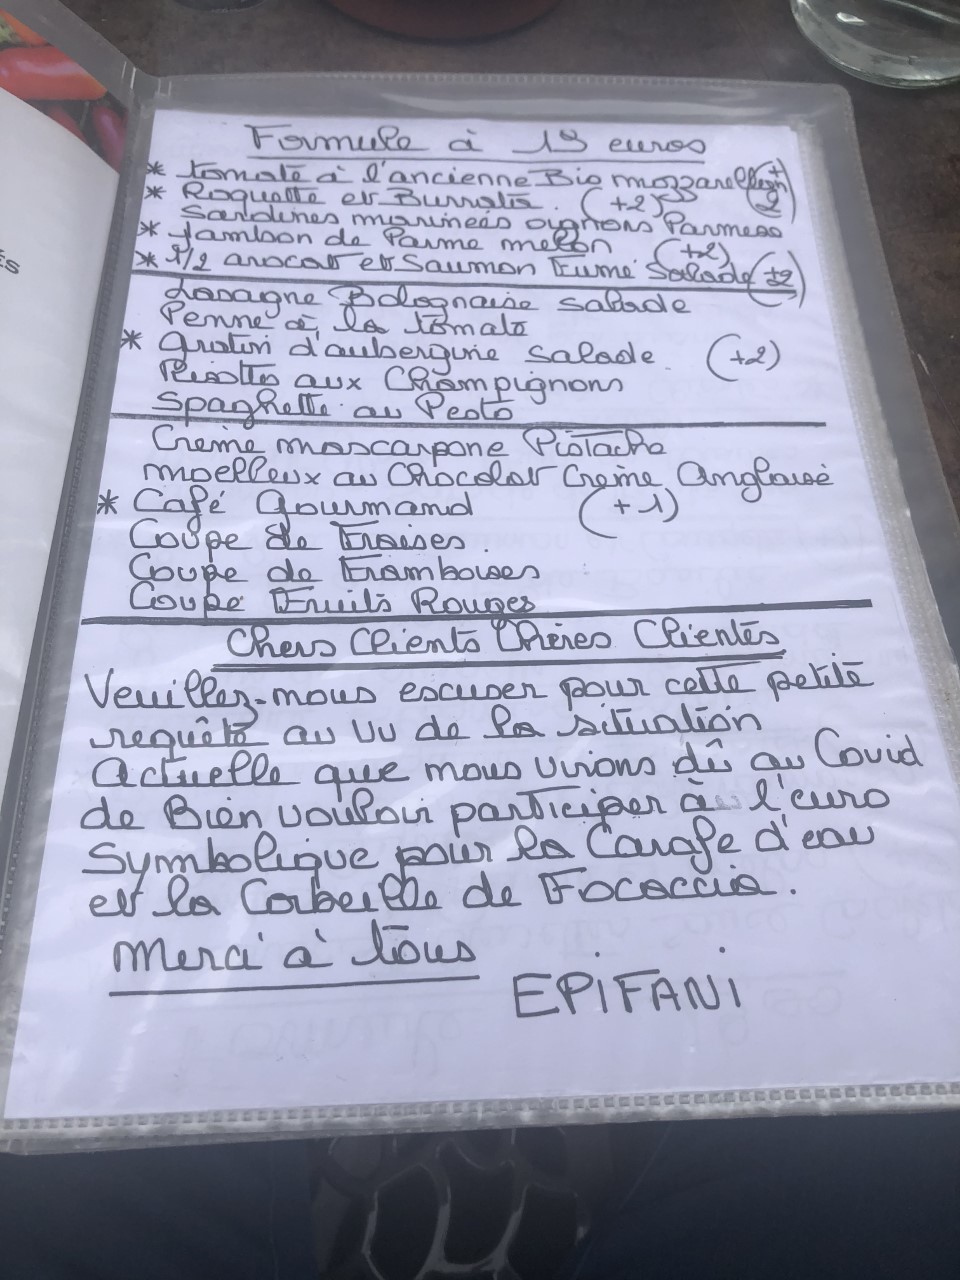 Formule à 19 euros
* tomate à l'ancienne Bio mozzarella (+2)
* Roquette et Burrata. (+2)
Sardines marinées oignons Parmesa
* Jambon de Parme melon (+2)
* 1/2 avocat et Saumon Fumé Salade (+2)
Lasagne Bolognaise salade
Penne à la tomate
* Gratin d'aubergine salade. (+2)
Risotto aux Champignons
Spaghette au Pesto
Crème mascarpone Pistache
moelleux au Chocolat Crème Anglaise
* Café Gourmand (+1)
Coupe de Fraises.
Coupe de Framboises
Coupe Fruits Rouges
Chers Clients Chères Clientes
Veuillez-nous escuser pour cette petite
requête au vu de la situation
Actuelle que nous vivons dû au Covid
de Bien vouloir participer à l'euro
Symbolique pour la Carafe d'eau
et la Corbeille de Focaccia.
Merci à tous
EPIFANI